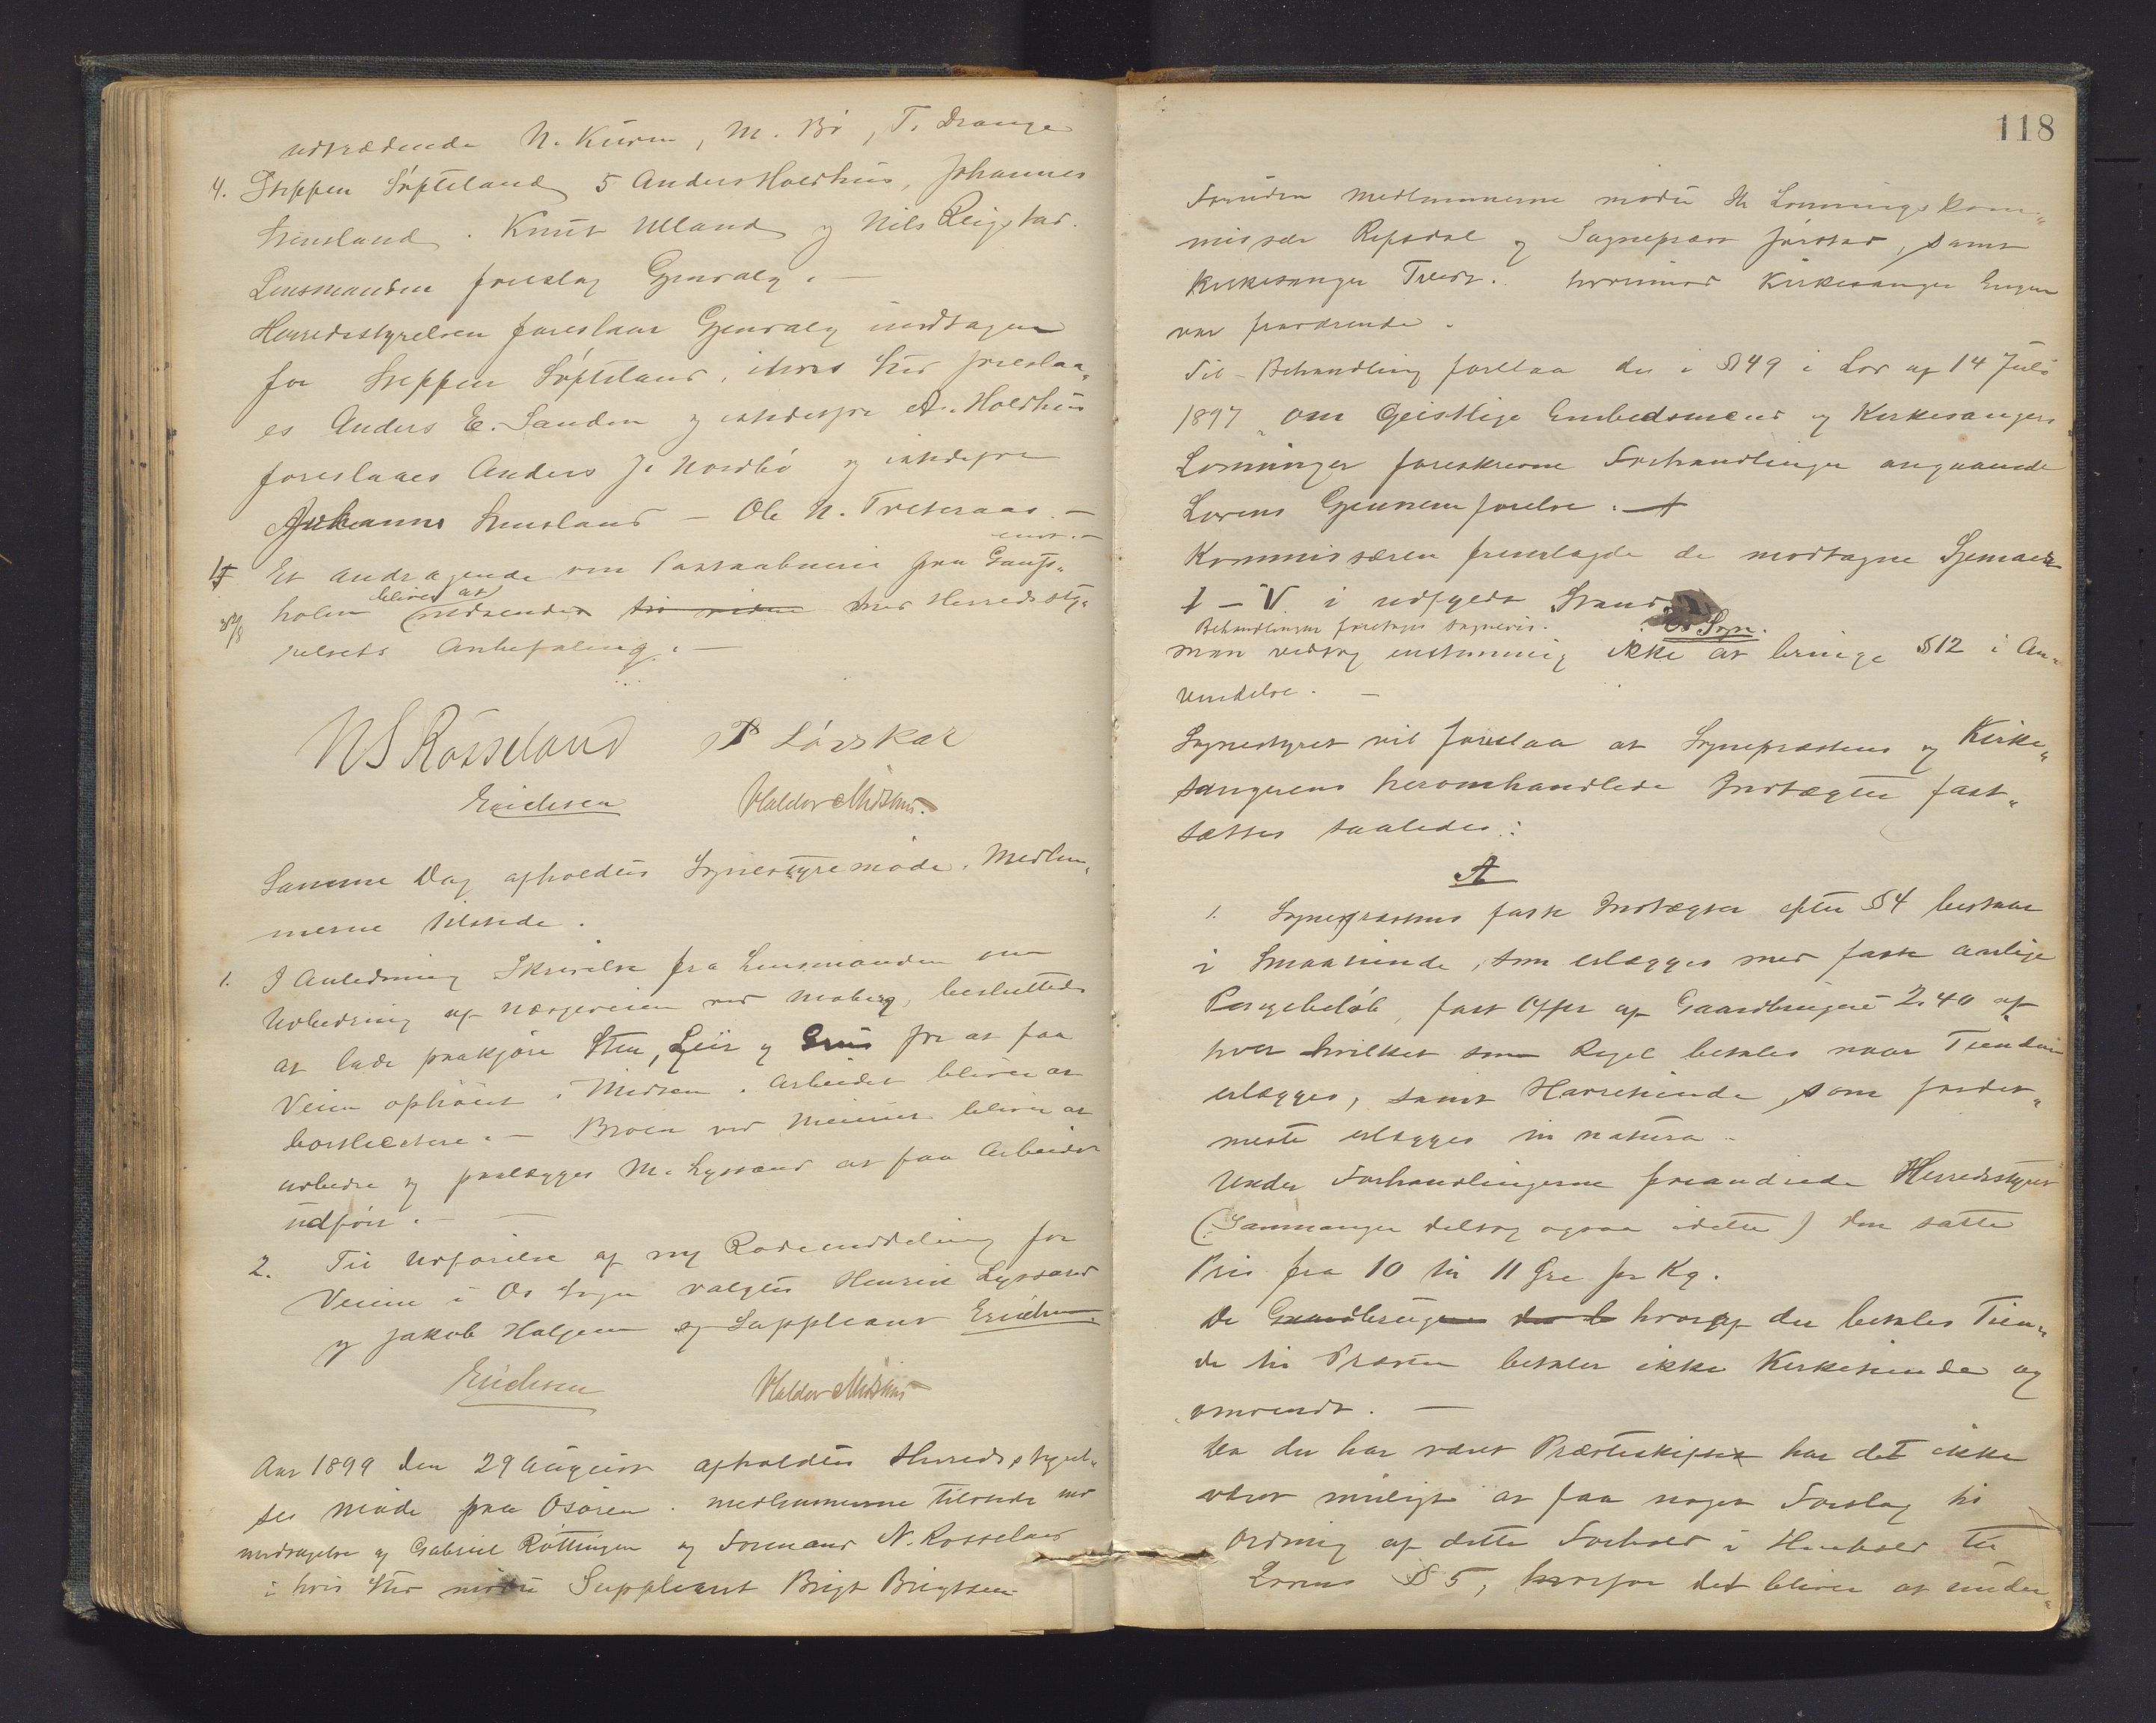 udtrædende N. Kuven, M. Bø, T. Drange
4. Steffen Søfteland 5 Anders Holdhus, Johannes
Stensland. Knut Ulland og Nils Reigstad.
Lensmanden foreslog Gjenvalg. —
Herredsstyrelsen foreslaar Gjenvalg undtagen
for Steffen Søfteland, i hvis Sted foreslaa„
es Anders E. Sanden og istedetfor A. Holdhus
foreslaaes Anders J. Nordbø og istedetfor
Johannes Stensland — Ole N. Tveteraas. —
enst. —
Et Andragende om Postaabneri paa Gaups„
holm bliver at indsendes til videre med Herredssty„
relsets Anbefaling. —
NS Røsseland P Løvskar
Erichsen Haldor Midthus.
Samme Dag afholdtes Sognestyremøde. Medlem„
merne tilstede.
1. I Anledning Skrivelse fra Lensmanden om
Udbedring af Norgeveien ved Moberg, besluttedes
at lade paakjøre Sten, Leir og Grus for at faa
Veien ophøiet i Midten. Arbeidet bliver at
bortlicitere. — Broen ved bliver at
udbedre og paalægges M. Lyssand at faa Arbeidet
udført. —
2. Til Udførelse af ny Rodeinddeling for
Veiene i Os Sogn valgtes Henrik Lyssand
og Jakob Haljem og Suppleant Erichsen
Erichsen Haldor Midthus
Aar 1899 den 29 August afholdtes Herredsstyrel„
ses Møde paa Osøren. Medlemmerne tilstede med
undtagelse af Gabriel Røttingen og Formand N. Røsseland
i hvis Sted mødte Suppleant Brigt Brigtsen
118
Foruden Medlemmerne mødte Hr Lønningskom„
missær Refsdal og Sogneprest Jørstad, samt
Kirkesanger Tveit. hvorimod Kirkesanger Engen
var fraværende.
Til Behandling forelaa de i § 49 i Lov af 14 Juli
1897 „om Geistlige Embedsmænd og Kirkesangers
Lønninger foreskrevne Forhandlinger angaaende
Lovens Gjennemførelse.
Kommissæren fremlagde de modtagne Sjemaer
I – V i udfyldt Stand.
Behandlingen foretages sognevis. Os Sogn.
Man vedtog enstemmig ikke at bringe § 12 i An„
vendelse. —
Sognestyret vil foreslaa at Sogneprestens og Kirke„
sangerens heromhandlede Indtægter fast„
sættes saaledes:
A
1. Sogneprestens faste Indtægter efter § 4 bestaar
i Smaatiende, som erlægges med faste aarlige
Pengebeløb, fast Offer af Gaardbrugere 2.40 af
hver hvilket som Regel betales naar Tienden
erlægges, samt Havretiende, som for det
meste erlægges in natura.
Under Forhandlingerne forandrede Herredsstyret
(Samnanger deltog ogsaa i dette) den satte
Pris fra 10 til 11 Øre pr Kg.
De Gaardbrugere hvoraf der betales Tien„
de til Presten betaler ikke Kirketiende og
omvendt. —
Da der har været Præsteskifte har det ikke
været muligt at faa noget Forslag til
Ordning af dette Forhold i Henhold til
Lovens § 5, hvorfor det bliver at under„